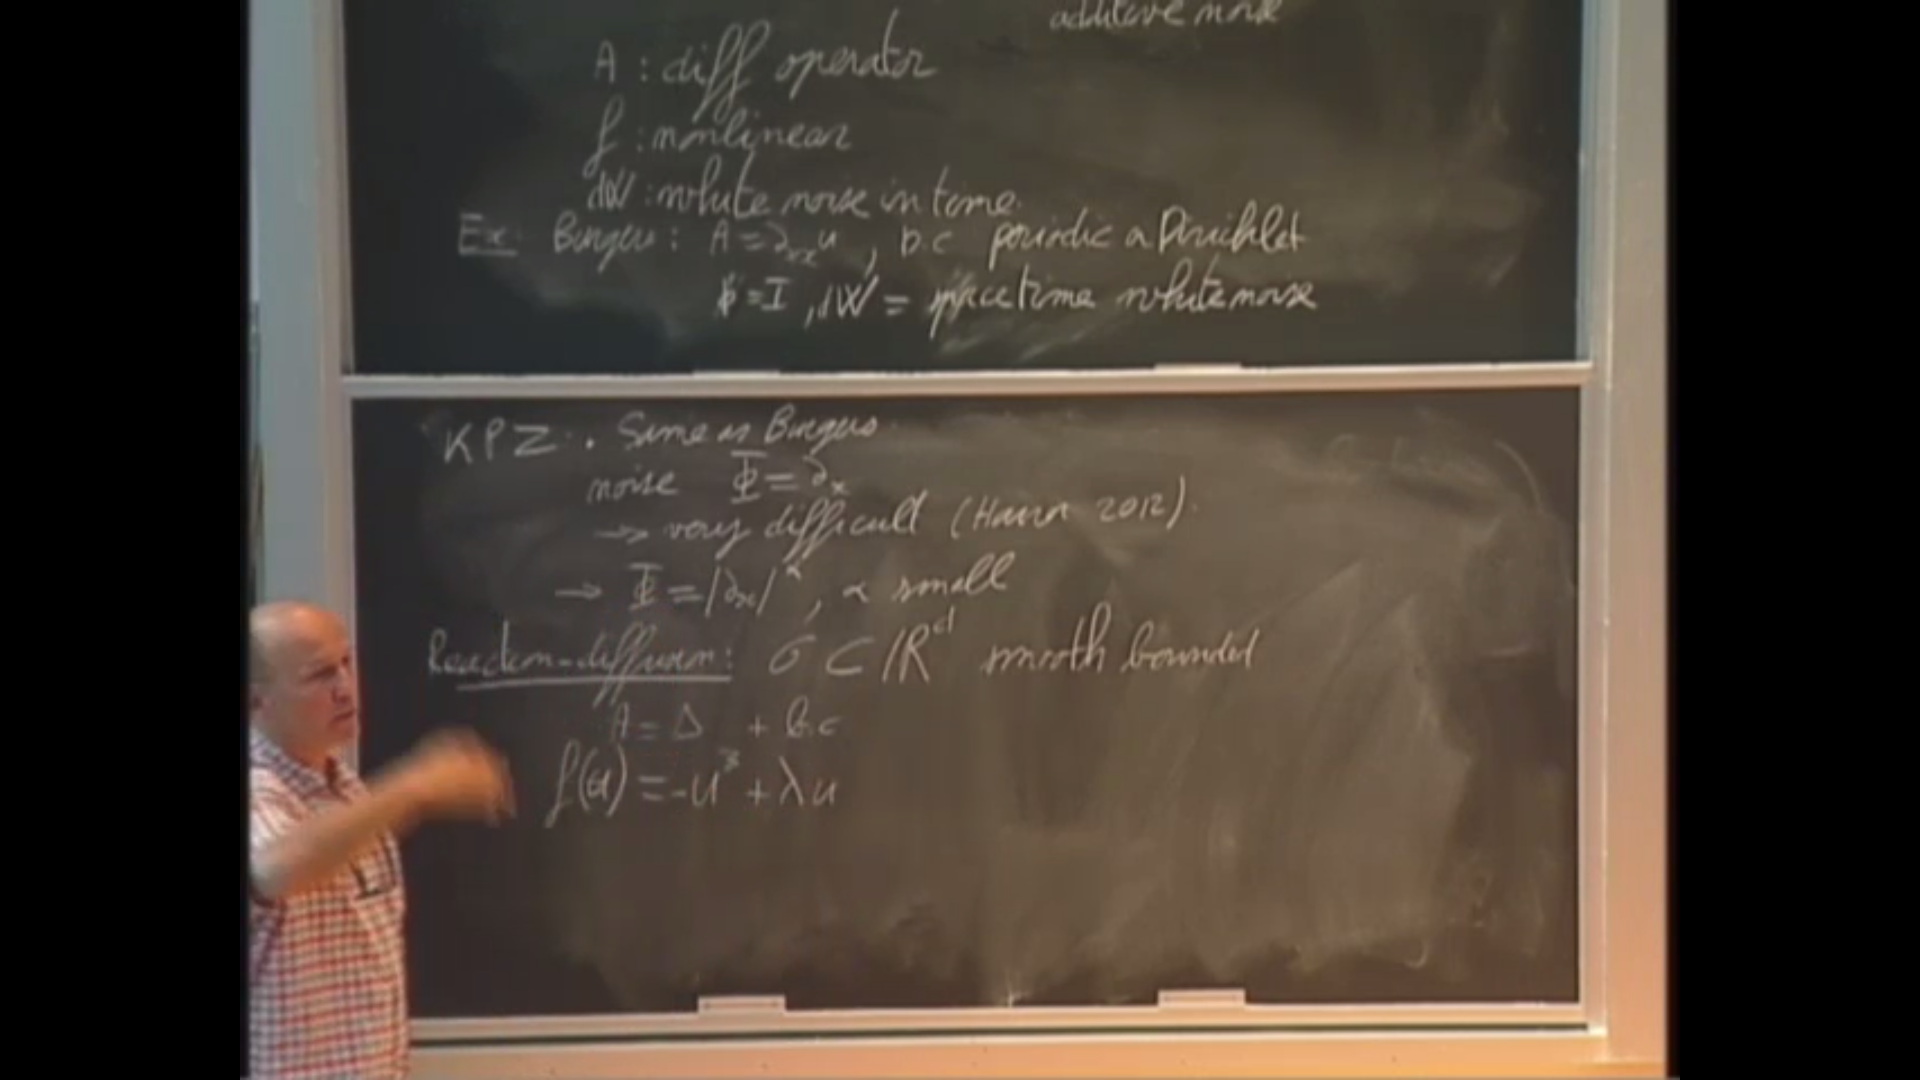 additive noise
A : diff operator
f : nonlinear
dW : white noise in time.
Ex: Burgers : A = ∂xx u , b.c periodic or Dirichlet
Φ = I , dW = space time white noise
KPZ . Same as Burgers
noise Φ = ∂x
→ very difficult (Hairer 2012).
→ Φ = |∂x|^α , α small
Reaction-diffusion : O ⊂ ℝ^d smooth bounded
A = Δ + b.c
f(u) = -u³ + λu